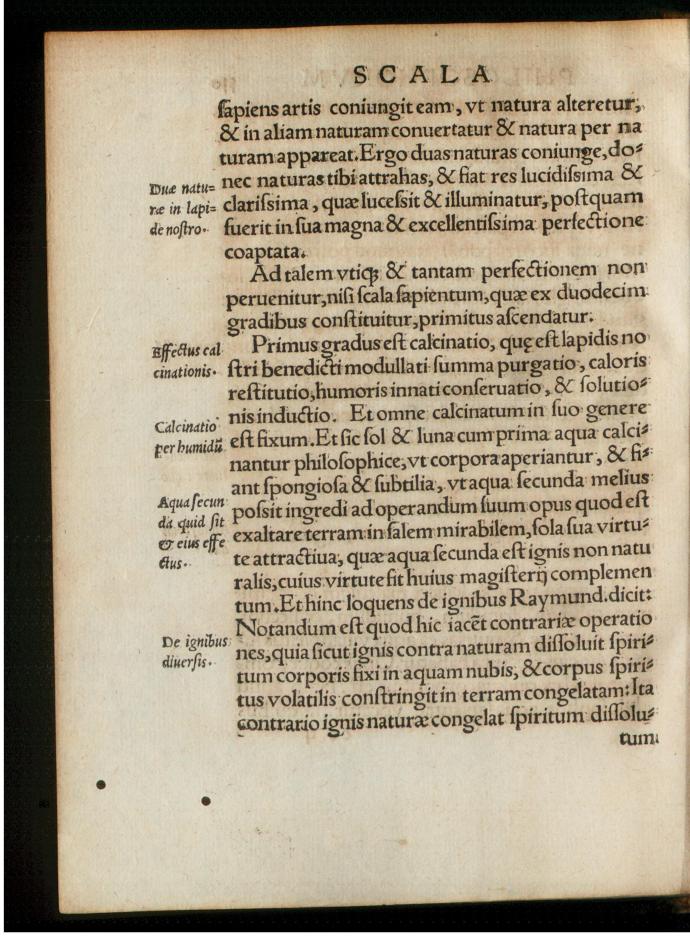 SCALA
sapiens artis coniungit eam, vt natura alteretur,
& in aliam naturam conuertatur & natura per na
turam appareat. Ergo duas naturas coniunge, do⸗
nec naturas tibi attrahas, & fiat res lucidissima &
clarissima, quæ lucessit & illuminatur, postquam
fuerit in sua magna & excellentissima perfectione
coaptata.
Duæ natu⸗
ræ in lapi⸗
de nostro.
Ad talem vtiqꝫ & tantam perfectionem non
peruenitur, nisi scala sapientum, quæ ex duodecim
gradibus constituitur, primitus ascendatur.
Primus gradus est calcinatio, quę est lapidis no
stri benedicti modullati summa purgatio, caloris
restitutio, humoris innati conseruatio, & solutio⸗
nis inductio. Et omne calcinatum in suo genere
est fixum. Et sic sol & luna cum prima aqua calci⸗
nantur philosophice, vt corpora aperiantur, & fi⸗
ant spongiosa & subtilia, vt aqua secunda melius
possit ingredi ad operandum suum opus quod est
exaltare terram in salem mirabilem, sola sua virtu⸗
te attractiua, quæ aqua secunda est ignis non natu
ralis, cuius virtute fit huius magisterij complemen
tum. Et hinc loquens de ignibus Raymund. dicit:
Notandum est quod hic iacēt contrariæ operatio
nes, quia sicut ignis contra naturam dissoluit spiri⸗
tum corporis fixi in aquam nubis, & corpus spiri⸗
tus volatilis constringit in terram congelatam: Ita
contrario ignis naturæ congelat spiritum dissolu⸗
tum
Effectus cal
cinationis.
Calcinatio
per humidū
Aqua secun
da quid sit
& eius effe
ctus.
De ignibus
diuersis.